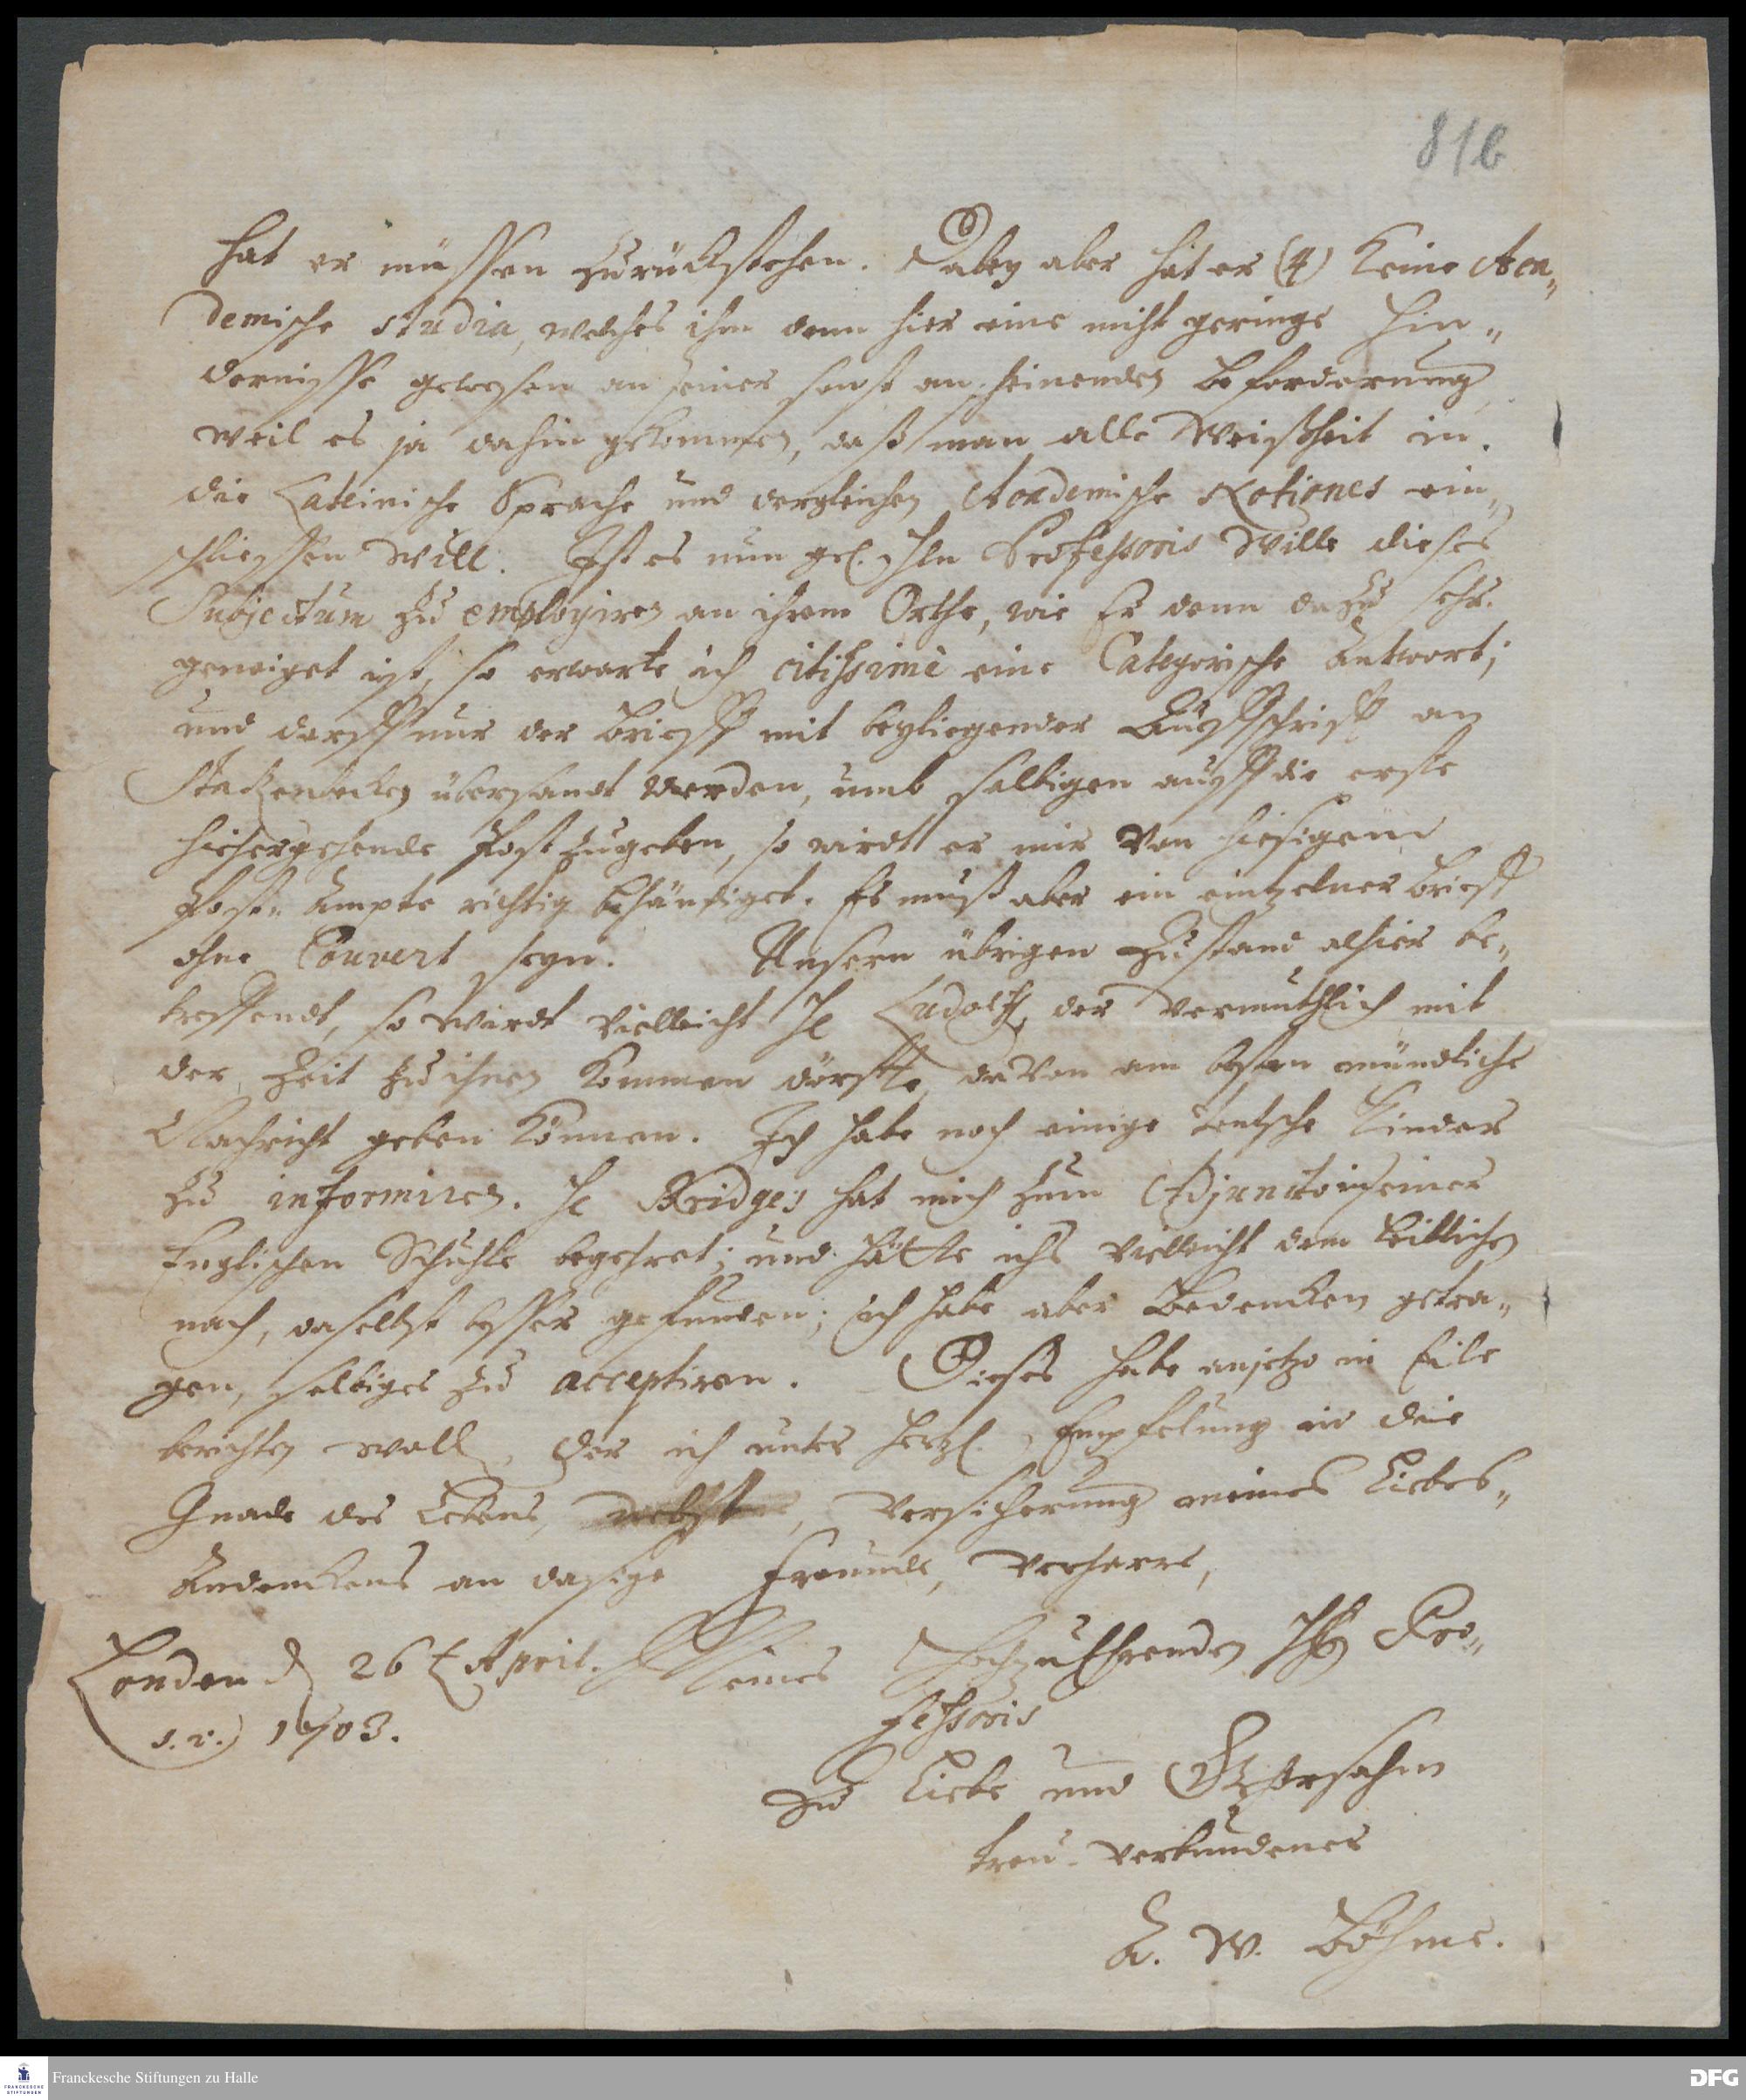 81b
hat er müssen zurückstehen. Dabey aber hat er (4) keine Aca„
demische studia, welches ihm denn hier eine nicht geringe Hin„
dernisse gewesen an seiner sonst anscheinenden Beforderung,
weil es ja dahin gekommen, daß man alle Weißheit in
die Lateinische Sprache und dergleichen Academische Notiones ein„
schliessen will. Ist es nun gel. HEn Professoris Wille dieses
Subjectum zu employiren an ihrem Orthe, wie Er denn dazu sehr
geneiget ist, so erwarte ich citissimè eine Categorische Antwort;
und darff nur der Brieff mit beyliegender Auffschrifft an
Statzenbecken übersandt werden, umb selbigen auff die erste
hiehergehende Post zugeben, so wirdt er mir von hiesigem
Post„ Ampte richtig behändiget. Es muß aber ein eintzelner Brieff
ohne Couvert seyn. Unsern übrigen Zustand alhier be„
treffendt, so wirdt vielleicht H Ludolff, der vermuthlich mit
der Zeit zu ihnen kommen dörffte, davon am besten mündliche
Nachricht geben können. Ich habe noch einige teutsche Kinder
zu informiren. H Bridges hat mich zum Adjuncto in seiner
Englischen Schuhle begehret; und hätte ichs vielleicht dem leiblichen
nach, daselbst besser gefunden; ich habe aber Bedencken getra„
gen, selbiges zu acceptiren. Dieses habe anjetzo in Eile
berichten woll, Der ich unter hertzl. Empfelung in die
Gnade des Lebens, nebst, Versicherung meines Liebes„
Andenckens an dasige Freunde, verharre,
London d 26 t April. Meines Hochzuehrenden HEn Pro„
s. v. 1703. fessoris
zu Liebe und Gehorsahm
treu-verbundener
A. W. Böhme.
Franckesche Stiftungen zu Halle
FRANCKESCHE STIFTUNGEN
DFG